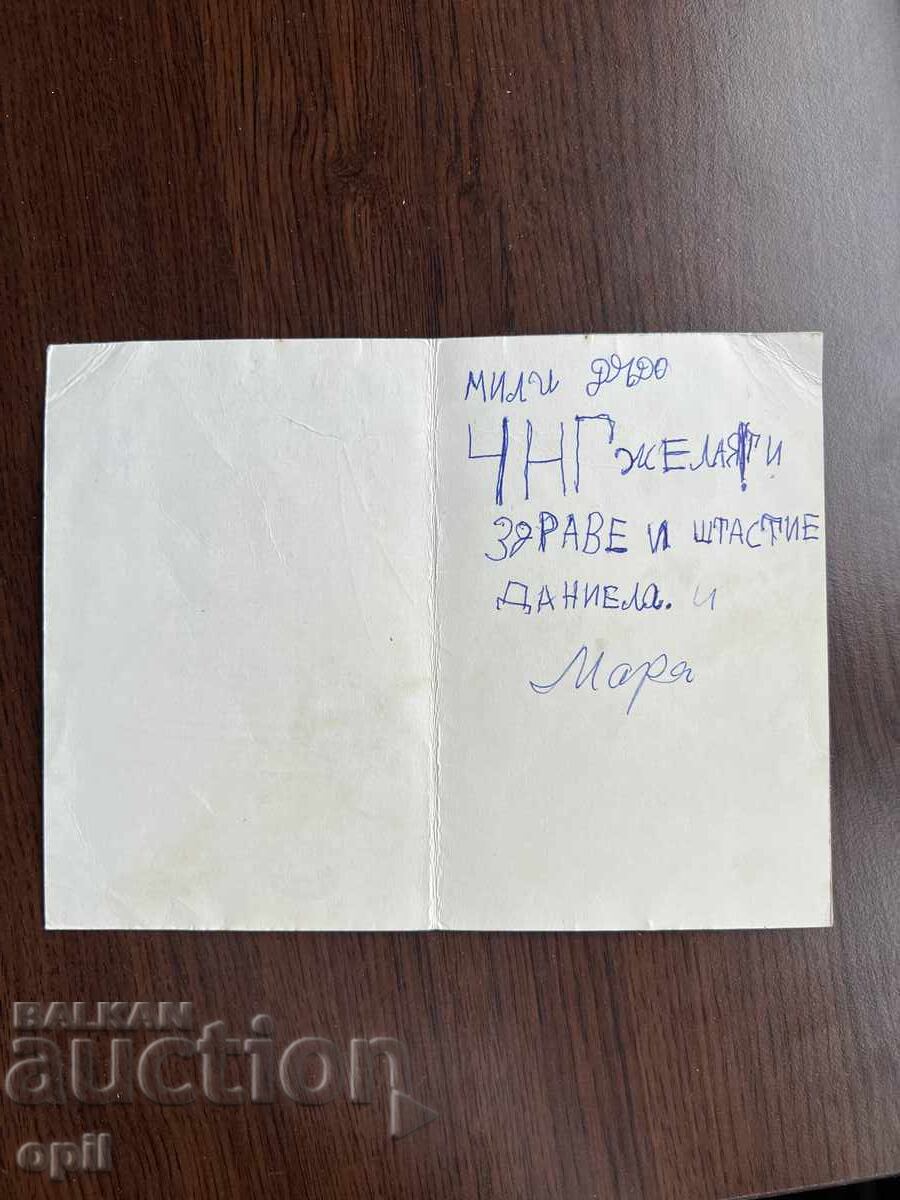 МИЛИ ДЯДО
ЧНГ ЖЕЛАЯ ТИ
ЗДРАВЕ И ШТАСТИЕ
ДАНИЕЛА. и
Мария
BALKAN
auction
opil